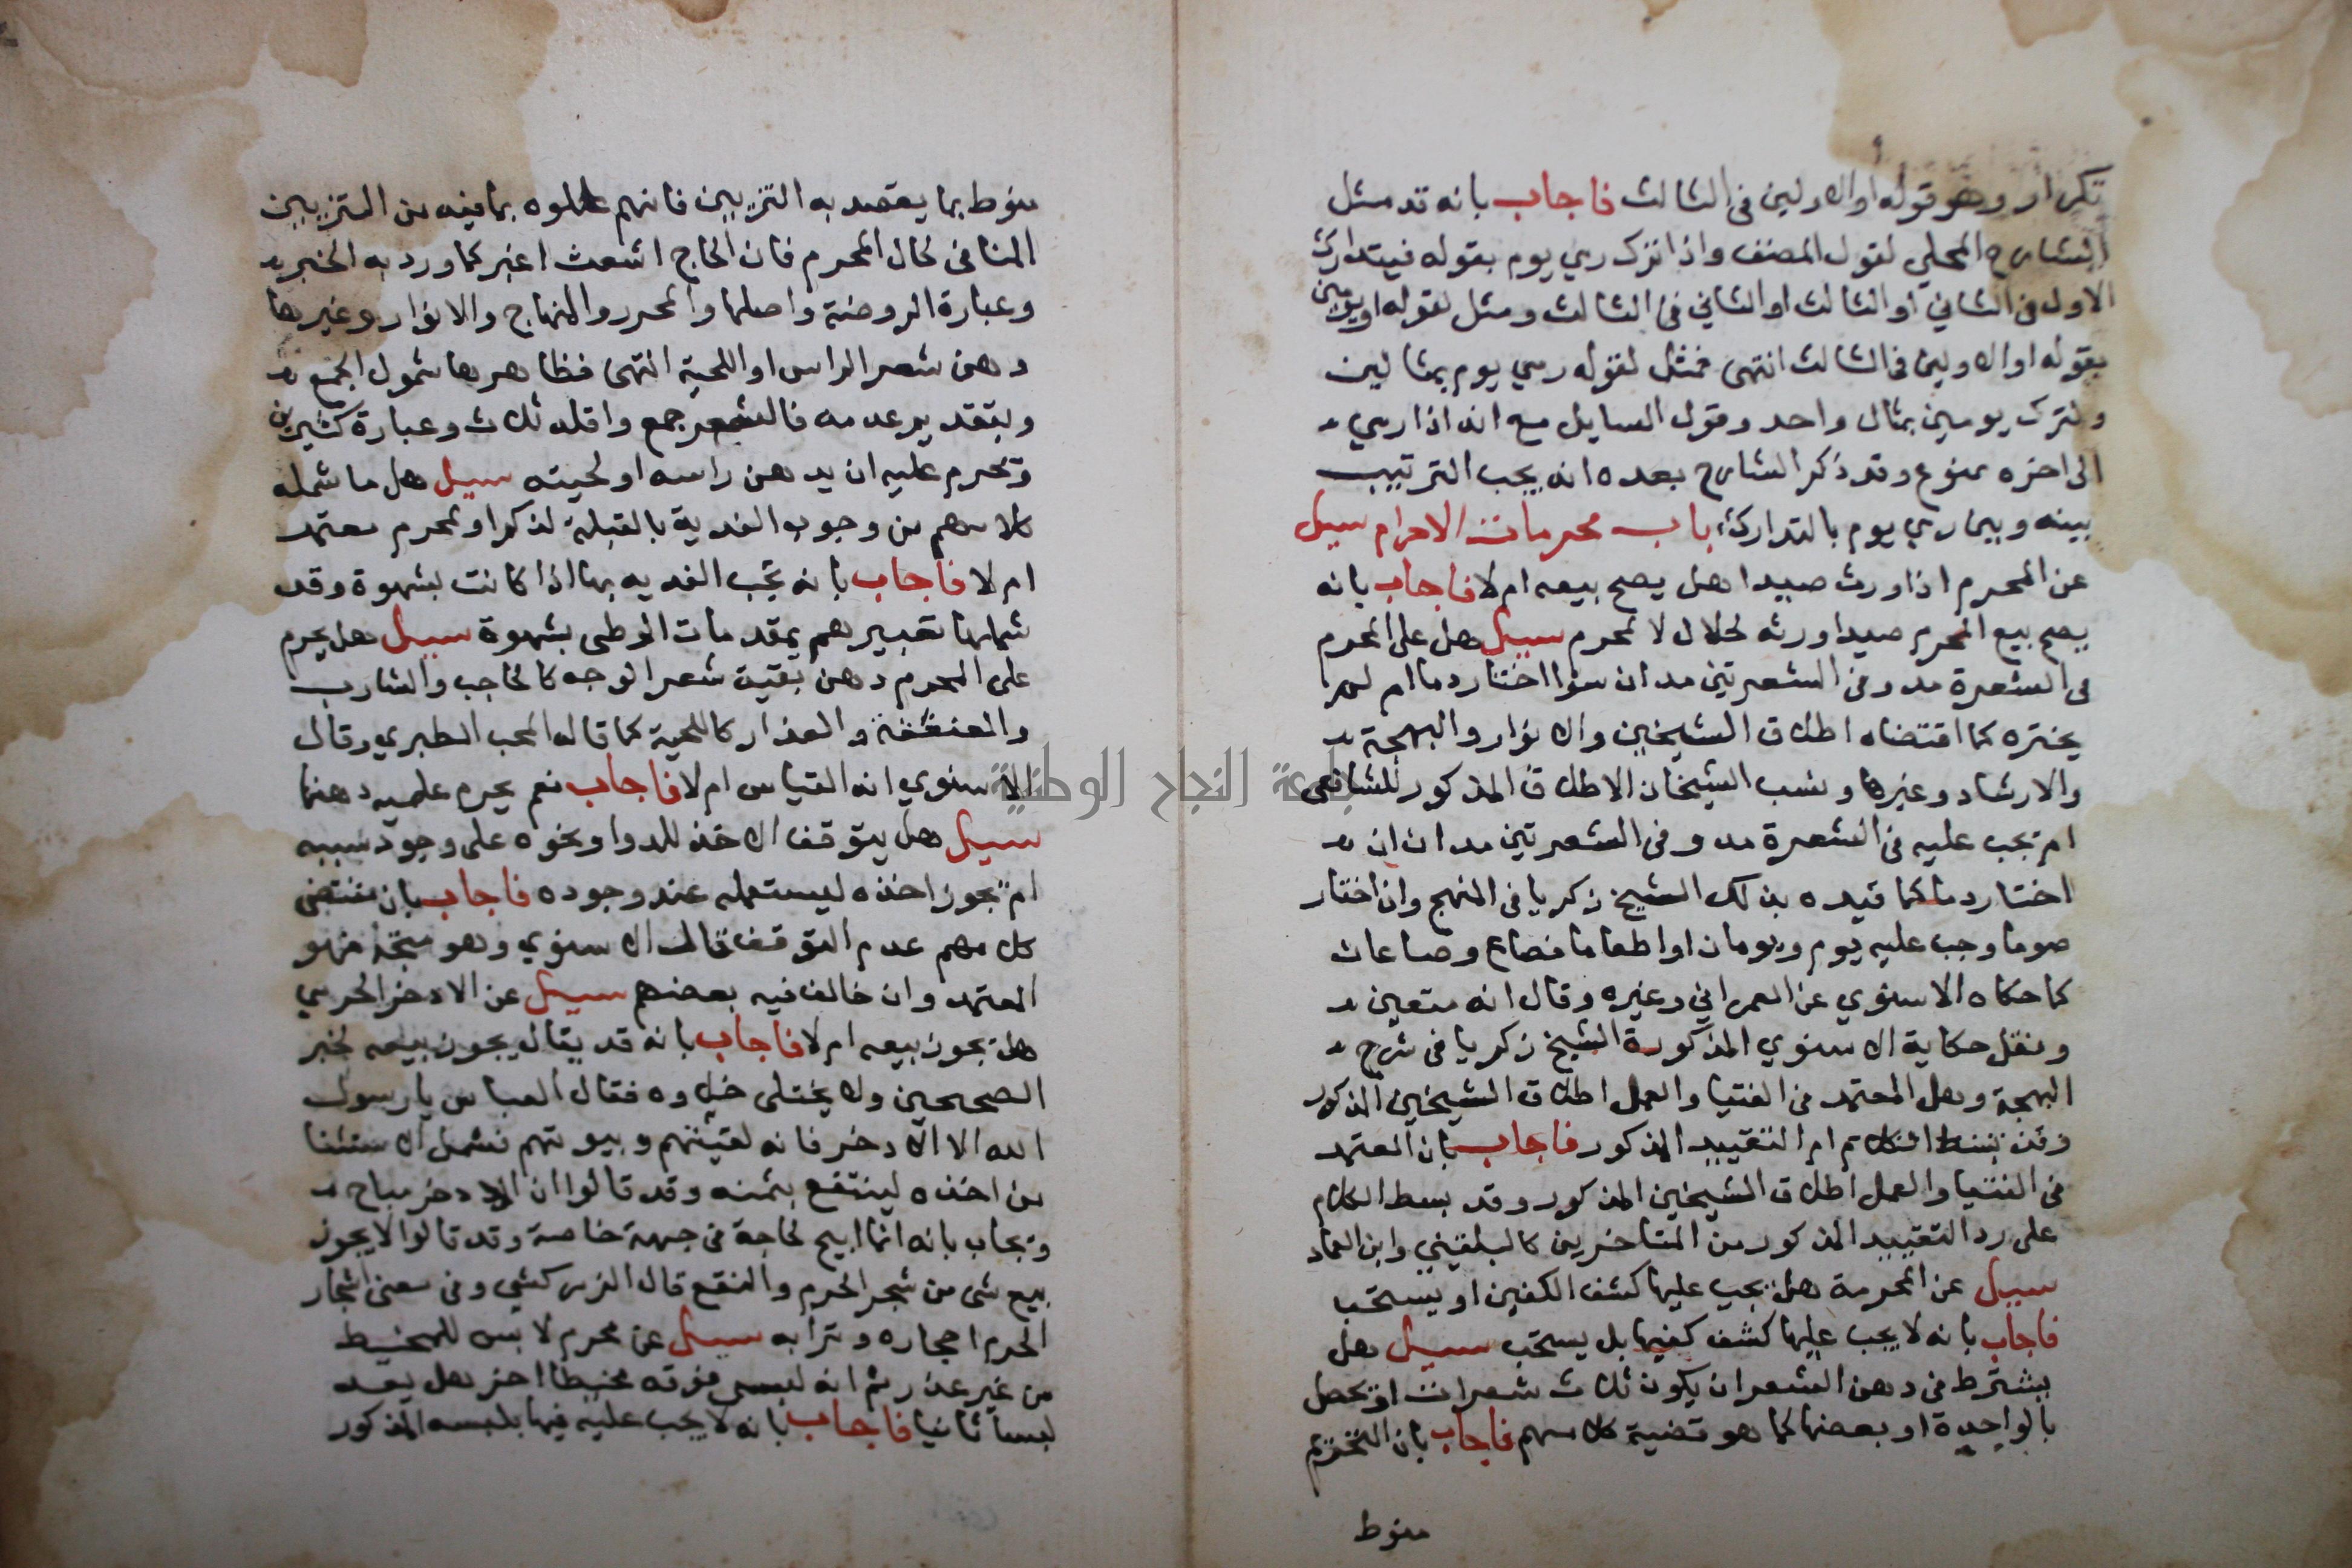 تكرار وهو قوله او الاولين في الثالث فاجاب بانه قد مثل
الشارح المحلي لقول المصنف واذا ترك رمي يوم بقوله فيتدارك
الاول في الثاني او الثالث او الثاني في الثالث ومثل لقوله او يومين
بقوله او الاولين في الثالث انتهى فمثل لقوله رمي يوم بمثالين
ولترك يومين بمثال واحد وقول السايل مع انه اذا رمي
الى اخره ممنوع وقد ذكر الشارح بعده انه يجب الترتيب
بينه وبين رمي يوم بالتدارك باب محرمات الاحرام سيل
عن المحرم اذا ورث صيدا هل يصح بيعه ام لا فاجاب بانه
يصح بيع المحرم صيدا ورثه لحلال لا لمحرم سيل هل على المحرم
في الشعرة مد وفي الشعرتين مدان سوا اختار دما ام لم
يختره كما اقتضاه اطلاق الشيخين والانوار والبهجة
والارشاد وغيرها ونسب الشيخان الاطلاق المذكور للشافعي
ام يجب عليه في الشعرة مد وفي الشعرتين مدان ان
اختار دما كما قيده بذلك الشيخ زكريا في المنهج وان اختار
صوما وجب عليه يوم ويومان او اطعاما فصاع وصاعات
كما حكاه الاسنوي عن العمراني وغيره وقال انه متعين
ونقل حكاية الاسنوي المذكورة الشيخ زكريا في شرح
البهجة وهل المعتمد في الفتيا والعمل اطلاق الشيخين المذكور
بسط الكلام ام التقييد المذكور فاجاب بان المعتمد
في الفتيا والعمل اطلاق الشيخين المذكور وقد بسط الكلام
على رد التقييد المذكور من المتاخرين كالبلقيني وابن العماد
سيل عن المحرمة هل يجب عليها كشف الكفين او يستحب
فاجاب بانه لا يجب عليها كشف كفيها بل يستحب سيل هل
يشترط في دهن الشعر ان يكون ثلاث شعرات او يحصل
بالواحدة او بعضها كما هو قضية كلامهم فاجاب بان التحريم
منوط
منوط بما يقصد به التزيين فانهم عللوه بما فيه من التزيين
المنافي لحال المحرم فان الحاج اشعث اغبر كما ورد به الخبر
وعبارة الروضة واصلها والمحرر والمنهاج والانوار وغيرها
دهن شعر الراس او اللحية انتهى فظاهرها شمول الجميع
وبتقدير عدمه فالشعر جمع واقله ثلاث وعبارة كثيرين
ويحرم عليه ان يدهن راسه او لحيته سيل هل ما شمله
كلامهم من وجوب الفدية بالقبلة لذكر او محرم معتمد
ام لا فاجاب بانه تجب الفديه بها اذا كانت بشهوة وقد
شملها تعبيرهم بمقدمات الوطى بشهوة سيل هل يحرم
على المحرم دهن بقية شعر الوجه كالحاجب والشارب
والعنفقة والعذار كاللحية كما قاله المحب الطبري وقال
الاسنوي انه القياس ام لا فاجاب نعم يحرم عليه دهنها
سيل هل يتوقف الاخذ للدوا ونحوه على وجود سببه
ام يجوز اخذه ليستعمله عند وجوده فاجاب بان مقتضى
كلامهم عدم التوقف قال الاسنوي وهو متجه فهو
المعتمد وان خالف فيه بعضهم سيل عن الاذخر الحرمي
هل يجوز بيعه ام لا فاجاب بانه قد يقال يجوز بيعه لخبر
الصحيحين ولا يختلى خلاه فقال العباس يا رسول
الله الا الاذخر فانه لقينهم وبيوتهم فشمل الاستثنا
من اخذه لينتفع بثمنه وقد قالوا ان الاذخر مباح
ويجاب بانه انما ابيح لحاجة في جهة خاصة وقد قالوا لا يجوز
بيع شى من شجر الحرم والنقع قال الزركشي وفي معنى اشجار
الحرم احجاره وترابه سيل عن محرم لابس للمخيط
من غير عذر ثم انه لبس فوقه مخيطا اخر هل يعد
لبسا ثانيا فاجاب بانه لا يجب عليه فيها بلبسه المذكور
جامعة النجاح الوطنية